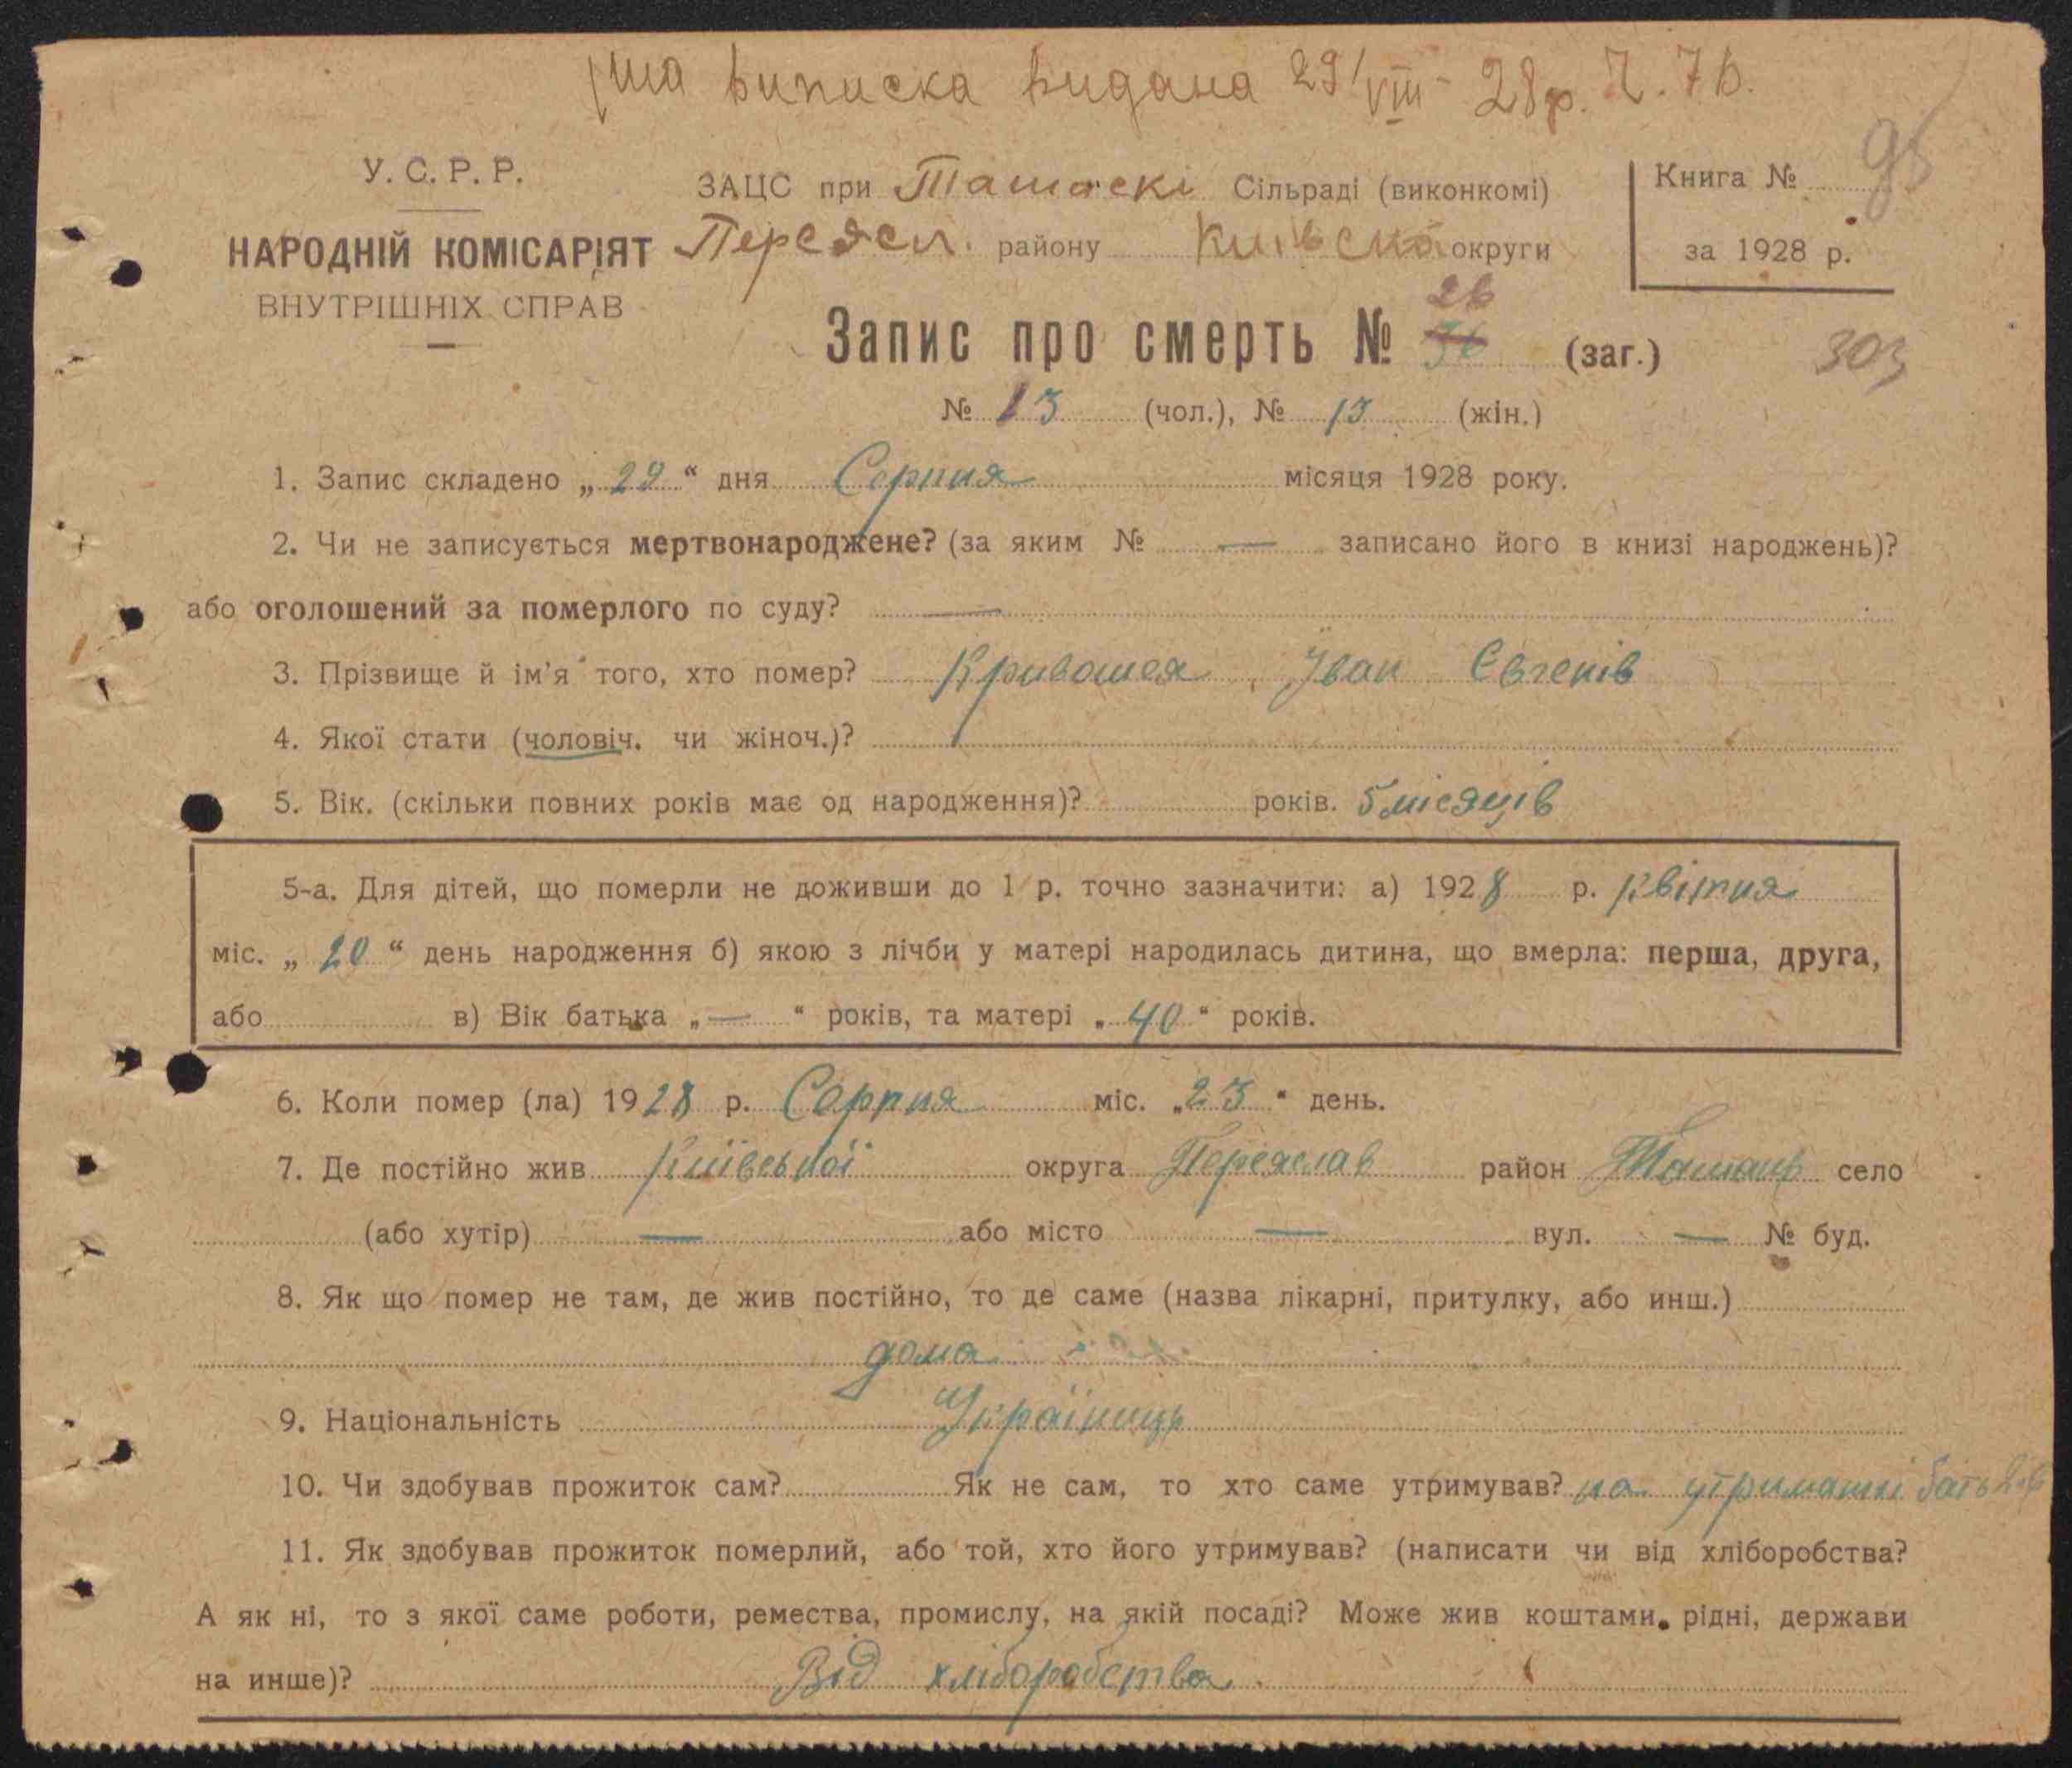 виписка видана 29/VIII - 28 р. Ч. 76.
У. С. Р. Р.
НАРОДНІЙ КОМІСАРІЯТ
ВНУТРІШНІХ СПРАВ
ЗАЦС при Ташаскі Сільраді (виконкомі)
Переясл. району Київсько округи
Книга №
за 1928 р.
Запис про смерть № 26 (заг.)
303
№ 13 (чол.), № 13 (жін.)
1. Запис складено „ 29 “ дня Серпня місяця 1928 року.
2. Чи не записується мертвонароджене? (за яким № — записано його в книзі народжень)?
або оголошений за померлого по суду? —
3. Прізвище й ім’я того, хто помер? Кривошея Іван Євгенів
4. Якої стати (чоловіч. чи жіноч.)?
5. Вік. (скільки повних років має од народження)? років. 5 місяців
5-а. Для дітей, що померли не доживши до 1 р. точно зазначити: а) 1928 р. квітня
міс. „ 20 “ день народження б) якою з лічби у матері народилась дитина, що вмерла: перша, друга,
або в) Вік батька „ — “ років, та матері „ 40 “ років.
6. Коли помер (ла) 1928 р. Серпня міс. „ 23 “ день.
7. Де постійно жив Київської округа Переяслав район Ташань село
(або хутір) — або місто — вул. — № буд.
8. Як що помер не там, де жив постійно, то де саме (назва лікарні, притулку, або инш.)
дома
9. Національність Українець
10. Чи здобував прожиток сам? Як не сам, то хто саме утримував? на утриманні батьків
11. Як здобував прожиток померлий, або той, хто його утримував? (написати чи від хліборобства?
А як ні, то з якої саме роботи, ремества, промислу, на якій посаді? Може жив коштами рідні, держави
на инше)? Від хліборобства